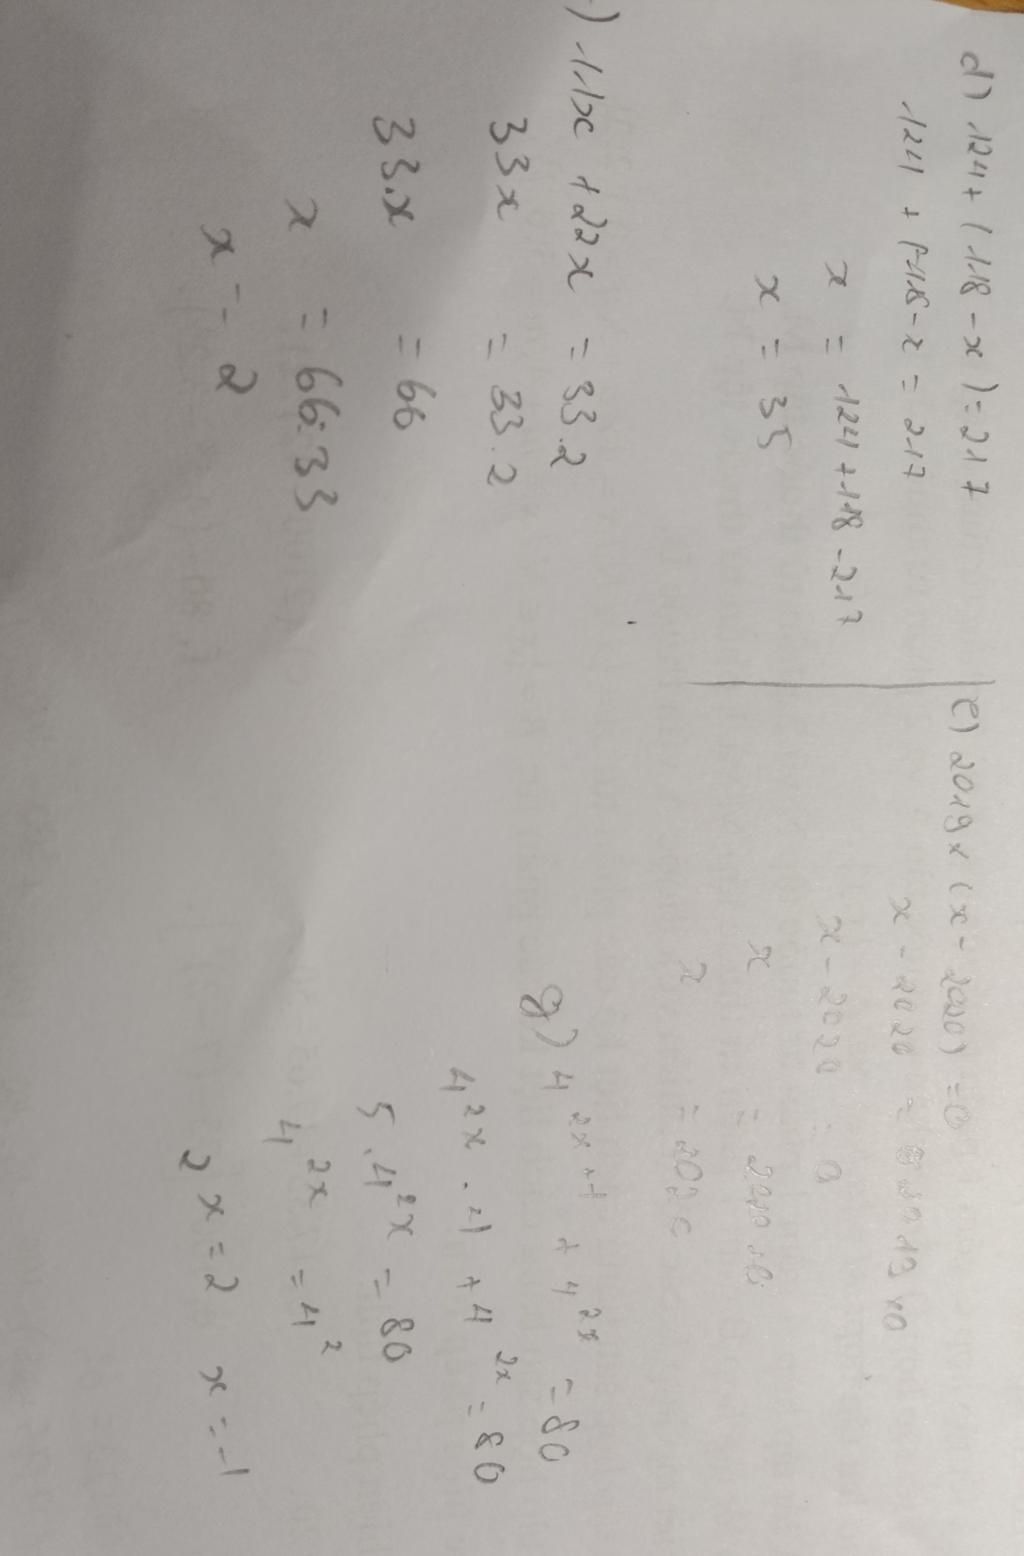 d) 124 + (118 - x) = 217
124 + 118 - x = 217
x = 124 + 118 - 217
x = 35
e) 2019 x (x - 2020) = 0
x - 2020 =
x - 2020 = 0
x =
x = 2020
) 11x + 22x = 33.2
33x = 33.2
33.x = 66
x = 66:33
x = 2
g) 4^{2x+1} + 4^{2x} = 80
4^{2x} . 4 + 4^{2x} = 80
5 . 4^{2x} = 80
4^{2x} = 4^2
2x = 2 x = 1